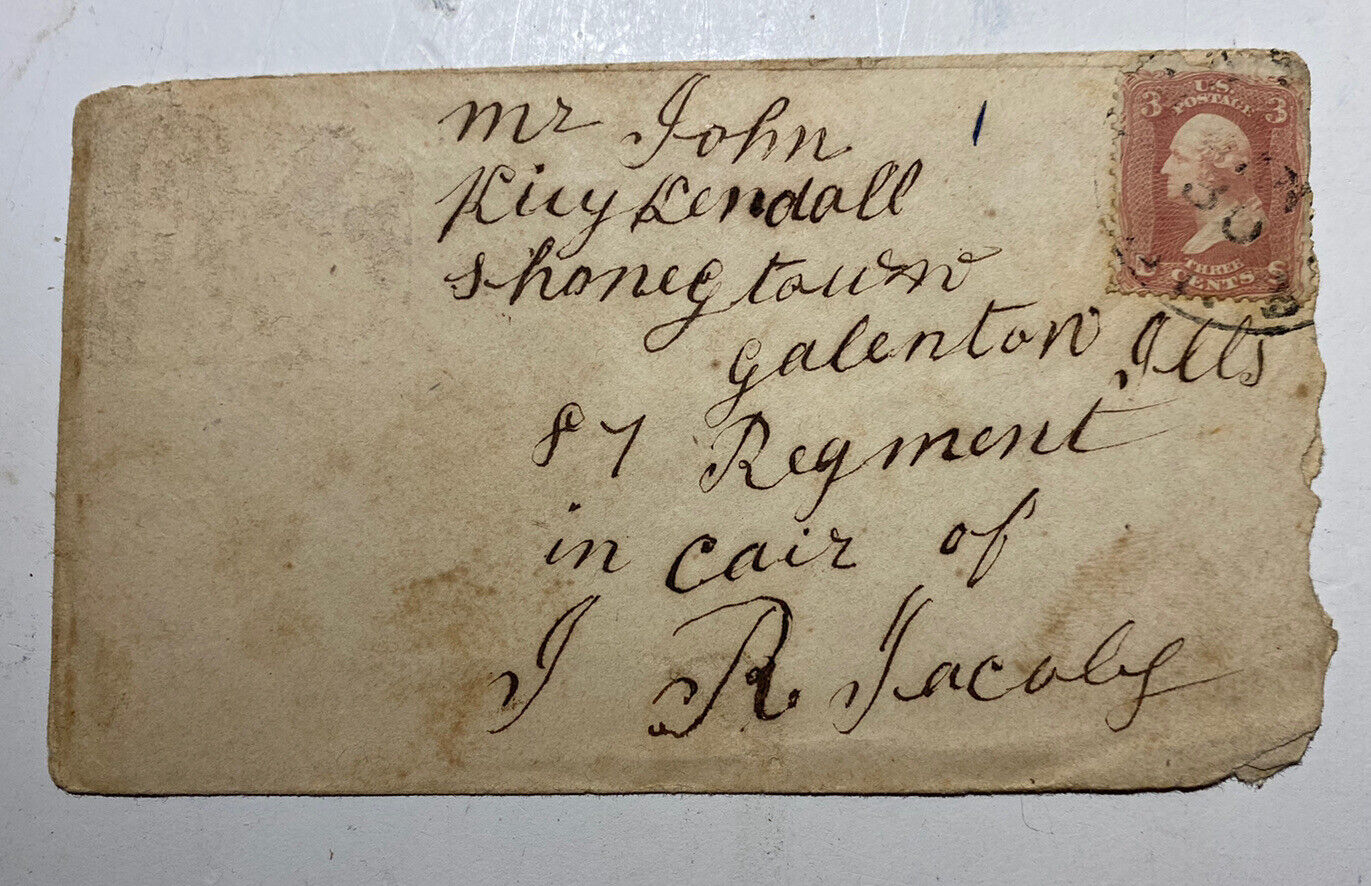 mr John
Kuykendall
Shonegtown
galenton Ills
87 Regment
in cair of
J R Jacoby
U.S.
POSTAGE
3 3
30
THREE
CENTS